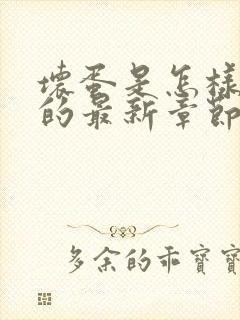 壞蛋是怎樣
的最新章節
多余的乖寶寶